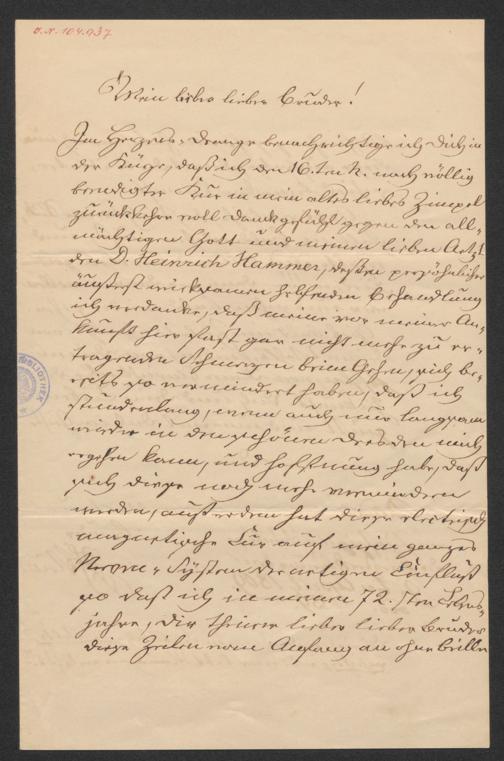 O.N. 104.937
Mein lieber lieber Bruder!
Im Herzens-Drange benachrichtige ich Dich in
der Kürze, daß ich den 16. ten k. nach völlig
beendigter Kur in mein altes liebes Zimpel
zurückkehre voll Dankgefühl gegen den all-
mächtigen Gott und meinen lieben Arzt
den D. Heinrich Hammer, dessen persönlicher
äußerst wirksamen helfenden Behandlung
ich verdanke, daß meine vor meiner An-
kunft hier fast gar nicht mehr zu er-
tragenden Schmerzen beim Gehen, sich be-
reits so vermindert haben, daß ich
stundenlang, wenn auch nur langsam
wieder in dem schönen Dresden mich
ergehen kann, und Hoffnung habe, daß
sich diese noch mehr vermindern
werden, außerdem hat diese electrisch
magnetische Kur auf mein ganzes
Nerven-System derartigen Einfluß
so daß ich in meinem 72. sten Lebens-
jahre, Dir theurer lieber lieber Bruder
diese Zeilen vom Anfang an ohne Brille